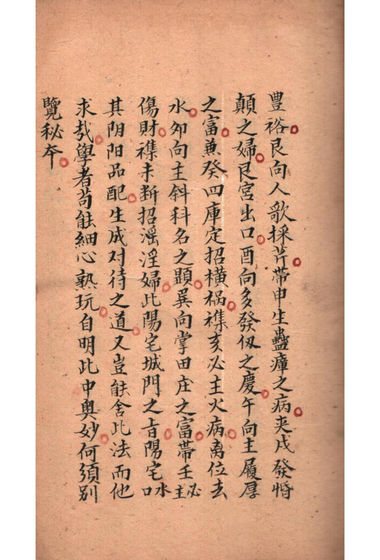 豊裕艮向人歌採芹帶申生蠱瘴之病夾戌發㛿
顛之婦艮宮出口酉向多發伋之慶午向主履厚
之富無癸四庫定招橫禍襍亥必主火病离位去
水夘向主斜科名之顕巽向掌田庄之富帶壬必主
傷財襍未断招滛淫婦此陽宅城門之旨陽宅水口
其阴阳品配生成对待之道又豈能舍此法而他
求㢤學者茍能細心熟玩自明此中奥妙何須別
覽秘夲